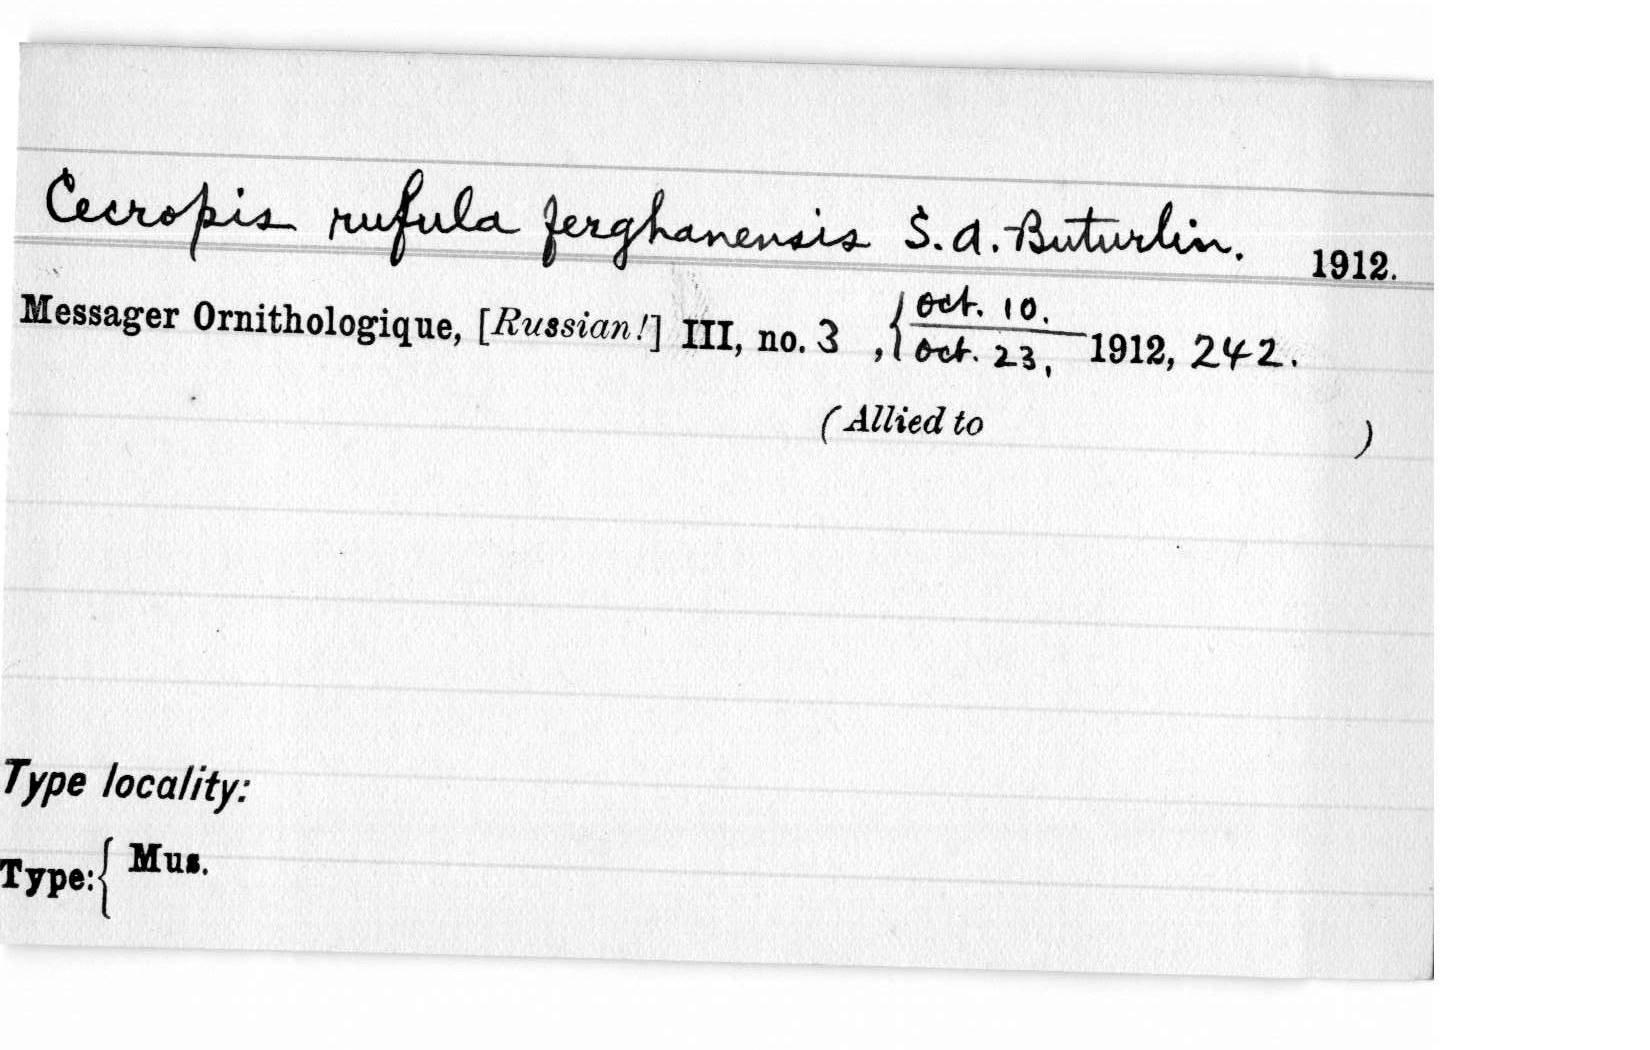 Cecropis rufula ferghanensis S.A. Buturlin. 1912.
Messager Ornithologique, [Russian!] III, no. 3 , { Oct. 10.
Oct. 23, 1912, 242.
(Allied to )
Type locality:
Type: { Mus.